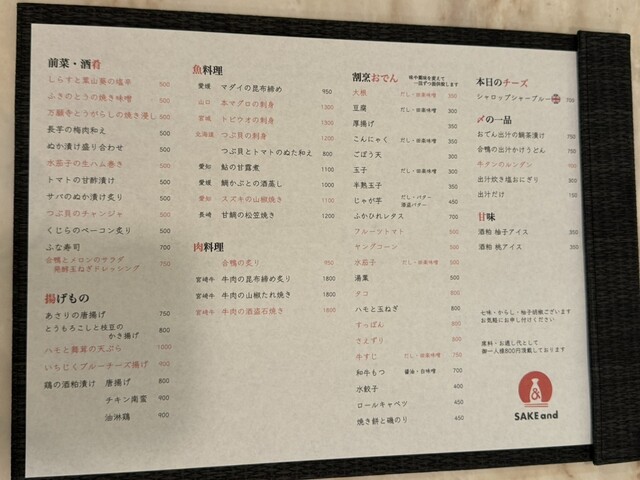 前菜・酒肴
しらすと葉山葵の塩辛 500
ふきのとうの焼き味噌 500
万願寺とうがらしの焼き浸し 500
長芋の梅肉和え 500
ぬか漬け盛り合わせ 500
水茄子の生ハム巻き 500
トマトの甘酢漬け 500
サバのぬか漬け炙り 500
つぶ貝のチャンジャ 500
くじらのベーコン炙り 500
ふな寿司 700
合鴨とメロンのサラダ 750
発酵玉ねぎドレッシング
揚げもの
あさりの唐揚げ 700
とうもろこしと枝豆の 800
かき揚げ
ハモと舞茸の天ぷら 1000
いちじくブルーチーズ揚げ 900
鶏の酒粕漬け 唐揚げ 800
チキン南蛮 900
油淋鶏 900
魚料理
愛媛 マダイの昆布締め 950
山口 本マグロの刺身 1300
宮城 トビウオの刺身 1300
北海道 つぶ貝の刺身 1200
つぶ貝とトマトのぬた和え 800
愛知 鮎の甘露煮 1100
愛媛 鯛かぶとの酒蒸し 1000
愛知 スズキの山椒焼き 1100
長崎 甘鯛の松笠焼き 1200
肉料理
合鴨の炙り 950
宮崎牛 牛肉の昆布締め炙り 1800
宮崎牛 牛肉の山椒たれ焼き 1800
宮崎牛 牛肉の酒盗石焼き 1800
割烹おでん
大根 だし・田楽味噌 350
豆腐 だし・田楽味噌 300
厚揚げ 350
こんにゃく だし・田楽味噌 300
ごぼう天 300
玉子 だし・田楽味噌 300
半熟玉子 350
じゃが芋 だし・バター 酒盗バター 450
ふかひれレタス 700
フルーツトマト 500
ヤングコーン 500
水茄子 だし・田楽味噌 500
湯葉 500
タコ 800
ハモと玉ねぎ 800
すっぽん 800
さえずり 800
牛すじ だし・田楽味噌 750
和牛もつ 醤油・白味噌 700
水餃子 400
ロールキャベツ 450
焼き餅と磯のり 450
本日のチーズ
シャロップシャーブルー 700
〆の一品
おでん出汁の鯛茶漬け
合鴨の出汁かけうどん
牛タンのルンダン
出汁炊き塩おにぎり
出汁だけ 150
甘味
酒粕 柚子アイス 350
酒粕 桃アイス 350
七味・からし・柚子胡椒ございます
お気軽にお申し付けください
席料・お通し代として
御一人様800円頂戴しております
&
SAKE and